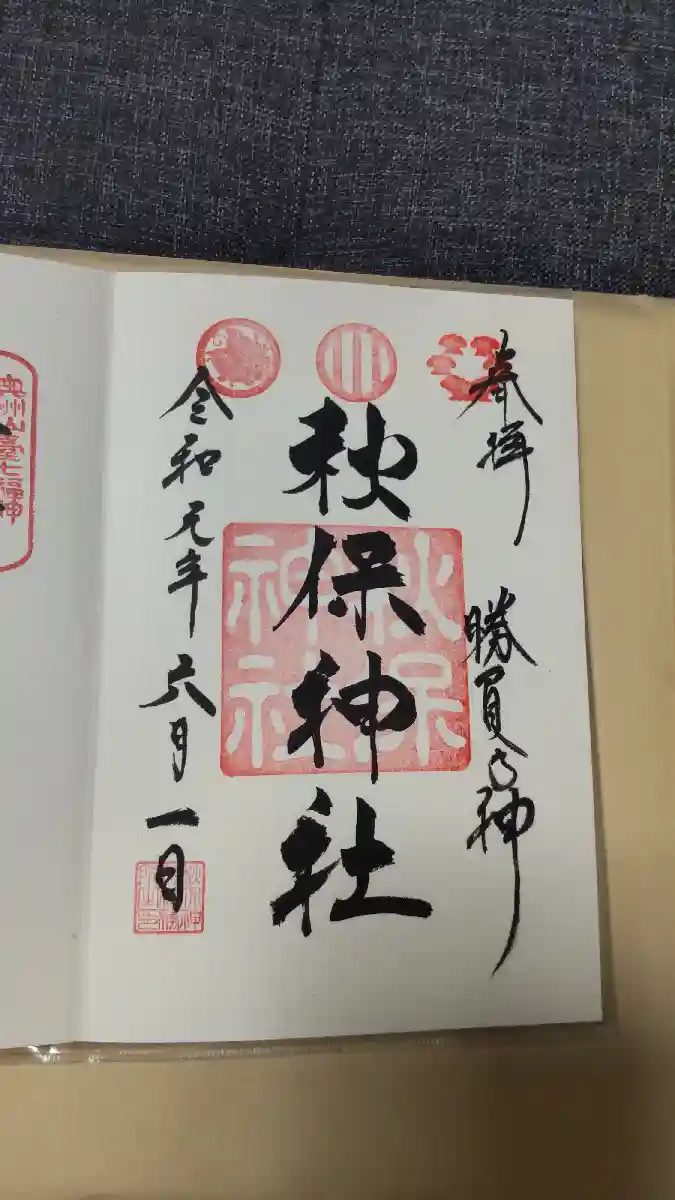 奉拝 勝負の神
秋保神社
秋保
神社
令和元年六月一日
奥州仙臺七福神